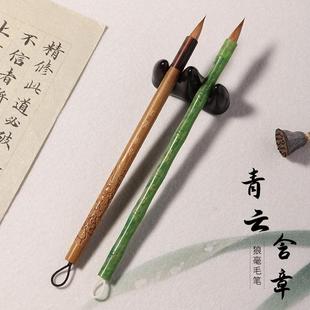 精修此道必破
不信者
青云含章
狼毫毛笔